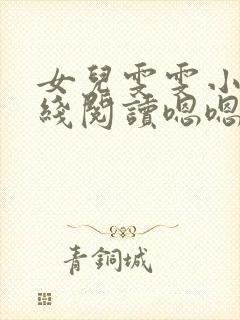 女兒雯雯小
綫閱讀嗯嗯
青銅城